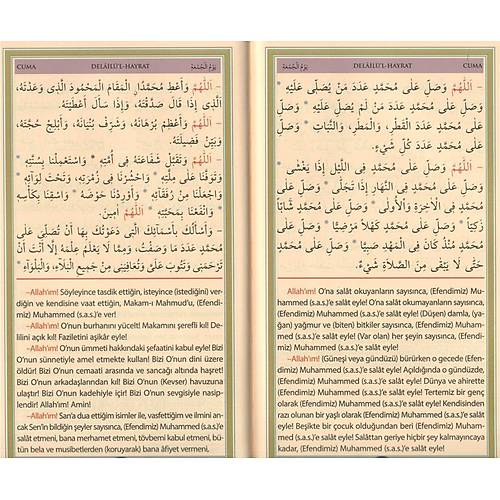 CUMA DELÂİLÜ'L-HAYRAT يَوْمُ الْجُمْعَةِ
– اَللّٰهُمَّ وَأَعْطِ مُحَمَّدًا، الْمَقَامَ الْمَحْمُودَ الَّذِى وَعَدْتَهُ،
الَّذِى إِذَا قَالَ صَدَّقْتَهُ، وَإِذَا سَأَلَ أَعْطَيْتَهُ.
– اَللّٰهُمَّ وَأَعْظِمْ بُرْهَانَهُ، وَشَرِّفْ بُنْيَانَهُ، وَأَبْلِجْ حُجَّتَهُ،
وَبَيِّنْ فَضِيلَتَهُ.
– اَللّٰهُمَّ وَتَقَبَّلْ شَفَاعَتَهُ فِى أُمَّتِهِ * وَاسْتَعْمِلْنَا بِسُنَّتِهِ *
وَتَوَفَّنَا عَلَى مِلَّتِهِ * وَاحْشُرْنَا فِى زُمْرَتِهِ، وَتَحْتَ لِوَائِهِ *
وَاجْعَلْنَا مِنْ رُفَقَائِهِ * وَأَوْرِدْنَا حَوْضَهُ * وَاسْقِنَا بِكَأْسِهِ
* وَانْفَعْنَا بِمَحَبَّتِهِ * اَللّٰهُمَّ اٰمِينَ.
– وَأَسْأَلُكَ بِأَسْمَائِكَ الَّتِى دَعَوْتُكَ بِهَا أَنْ تُصَلِّىَ عَلَى
مُحَمَّدٍ عَدَدَ مَا وَصَفْتُ، وَمِمَّا لَا يَعْلَمُ عِلْمَهُ إِلَّا أَنْتَ أَنْ
تَرْحَمَنِى وَتَتُوبَ عَلَىَّ وَتُعَافِيَنِى مِنْ جَمِيعِ الْبَلَاءِ، وَالْبَلْوَاءِ *
–Allah'ım! Söyleyince tasdik ettiğin, isteyince (istediğini) ver-
diğin ve kendisine vaat ettiğin, Makam-ı Mahmud'u, (Efendi-
miz) Muhammed (s.a.s.)'e ver!
–Allah'ım! O'nun burhanını yücelt! Makamını şerefli kıl! De-
lilini açık kıl! Faziletini aşikâr eyle!
–Allah'ım! O'nun ümmeti hakkındaki şefaatini kabul eyle! Bizi
O'nun sünnetiyle amel etmekte kullan! Bizi O'nun dini üzere
öldür! Bizi O'nun cemaati arasında ve sancağı altında haşret!
Bizi O'nun arkadaşlarından kıl! Bizi O'nun (Kevser) havuzuna
ulaştır! Bizi O'nun kadehiyle içir! Bizi O'nun sevgisiyle nasip-
lendir! Allah'ım! Amin!
–Allah'ım! San'a dua ettiğim isimler ile, vasfettiğim ve ilmini an-
cak Sen'in bildiğin şeyler sayısınca, (Efendimiz) Muhammed (s.a.s.)'e
salât etmeni, bana merhamet etmeni, tövbemi kabul etmeni, bü-
tün bela ve musibetlerden (koruyarak) bana âfiyet vermeni,
يَوْمُ الْجُمْعَةِ DELÂİLÜ'L-HAYRAT CUMA
– اَللّٰهُمَّ وَصَلِّ عَلَى مُحَمَّدٍ عَدَدَ مَنْ يُصَلِّى عَلَيْهِ *
وَصَلِّ عَلَى مُحَمَّدٍ عَدَدَ مَنْ لَمْ يُصَلِّ عَلَيْهِ * وَصَلِّ
عَلَى مُحَمَّدٍ عَدَدَ الْقَطْرِ، وَالْمَطَرِ، وَالنَّبَاتِ * وَصَلِّ عَلَى
مُحَمَّدٍ عَدَدَ كُلِّ شَيْءٍ.
– اَللّٰهُمَّ وَصَلِّ عَلَى مُحَمَّدٍ فِى اللَّيْلِ إِذَا يَغْشَى *
وَصَلِّ عَلَى مُحَمَّدٍ فِى النَّهَارِ إِذَا تَجَلَّى * وَصَلِّ عَلَى
مُحَمَّدٍ فِى الْاٰخِرَةِ وَالْأُولَى * وَصَلِّ عَلَى مُحَمَّدٍ شَابًّا
زَكِيًّا * وَصَلِّ عَلَى مُحَمَّدٍ كَهْلًا مَرْضِيًّا * وَصَلِّ عَلَى
مُحَمَّدٍ مُنْذُ كَانَ فِى الْمَهْدِ صَبِيًّا * وَصَلِّ عَلَى مُحَمَّدٍ
حَتَّى لَا يَبْقَى مِنَ الصَّلَاةِ شَيْءٌ.
–Allah'ım! O'na salât okuyanların sayısınca, (Efendimiz) Mu-
hammed (s.a.s.)'e salât eyle! O'na salât okumayanların sayısınca,
(Efendimiz) Muhammed (s.a.s.)'e salât eyle! (Düşen) damla, (ya-
ğan) yağmur ve (biten) bitkiler sayısınca, (Efendimiz) Muham-
med (s.a.s.)'e salât eyle! (Var olan) her şeyin sayısınca, (Efendi-
miz) Muhammed (s.a.s.)'e salât eyle!
–Allah'ım! (Güneşi veya gündüzü) bürürken o gecede (Efen-
dimiz) Muhammed (s.a.s.)'e salât eyle! Açıldığında o gündüzde,
(Efendimiz) Muhammed (s.a.s.)'e salât eyle! Dünya ve ahirette
(Efendimiz) Muhammed (s.a.s.)'e salât eyle! Tertemiz bir genç
olarak (Efendimiz) Muhammed (s.a.s.)'e salât eyle! Kendisinden
razı olunan bir yaşlı olarak (Efendimiz) Muhammed (s.a.s.)'e salât
eyle! Beşikte bir çocuk olduğundan beri (Efendimiz) Muham-
med (s.a.s.)'e salât eyle! Salâttan geriye hiçbir şey kalmayıncaya
kadar, (Efendimiz) Muhammed (s.a.s.)'e salât eyle!